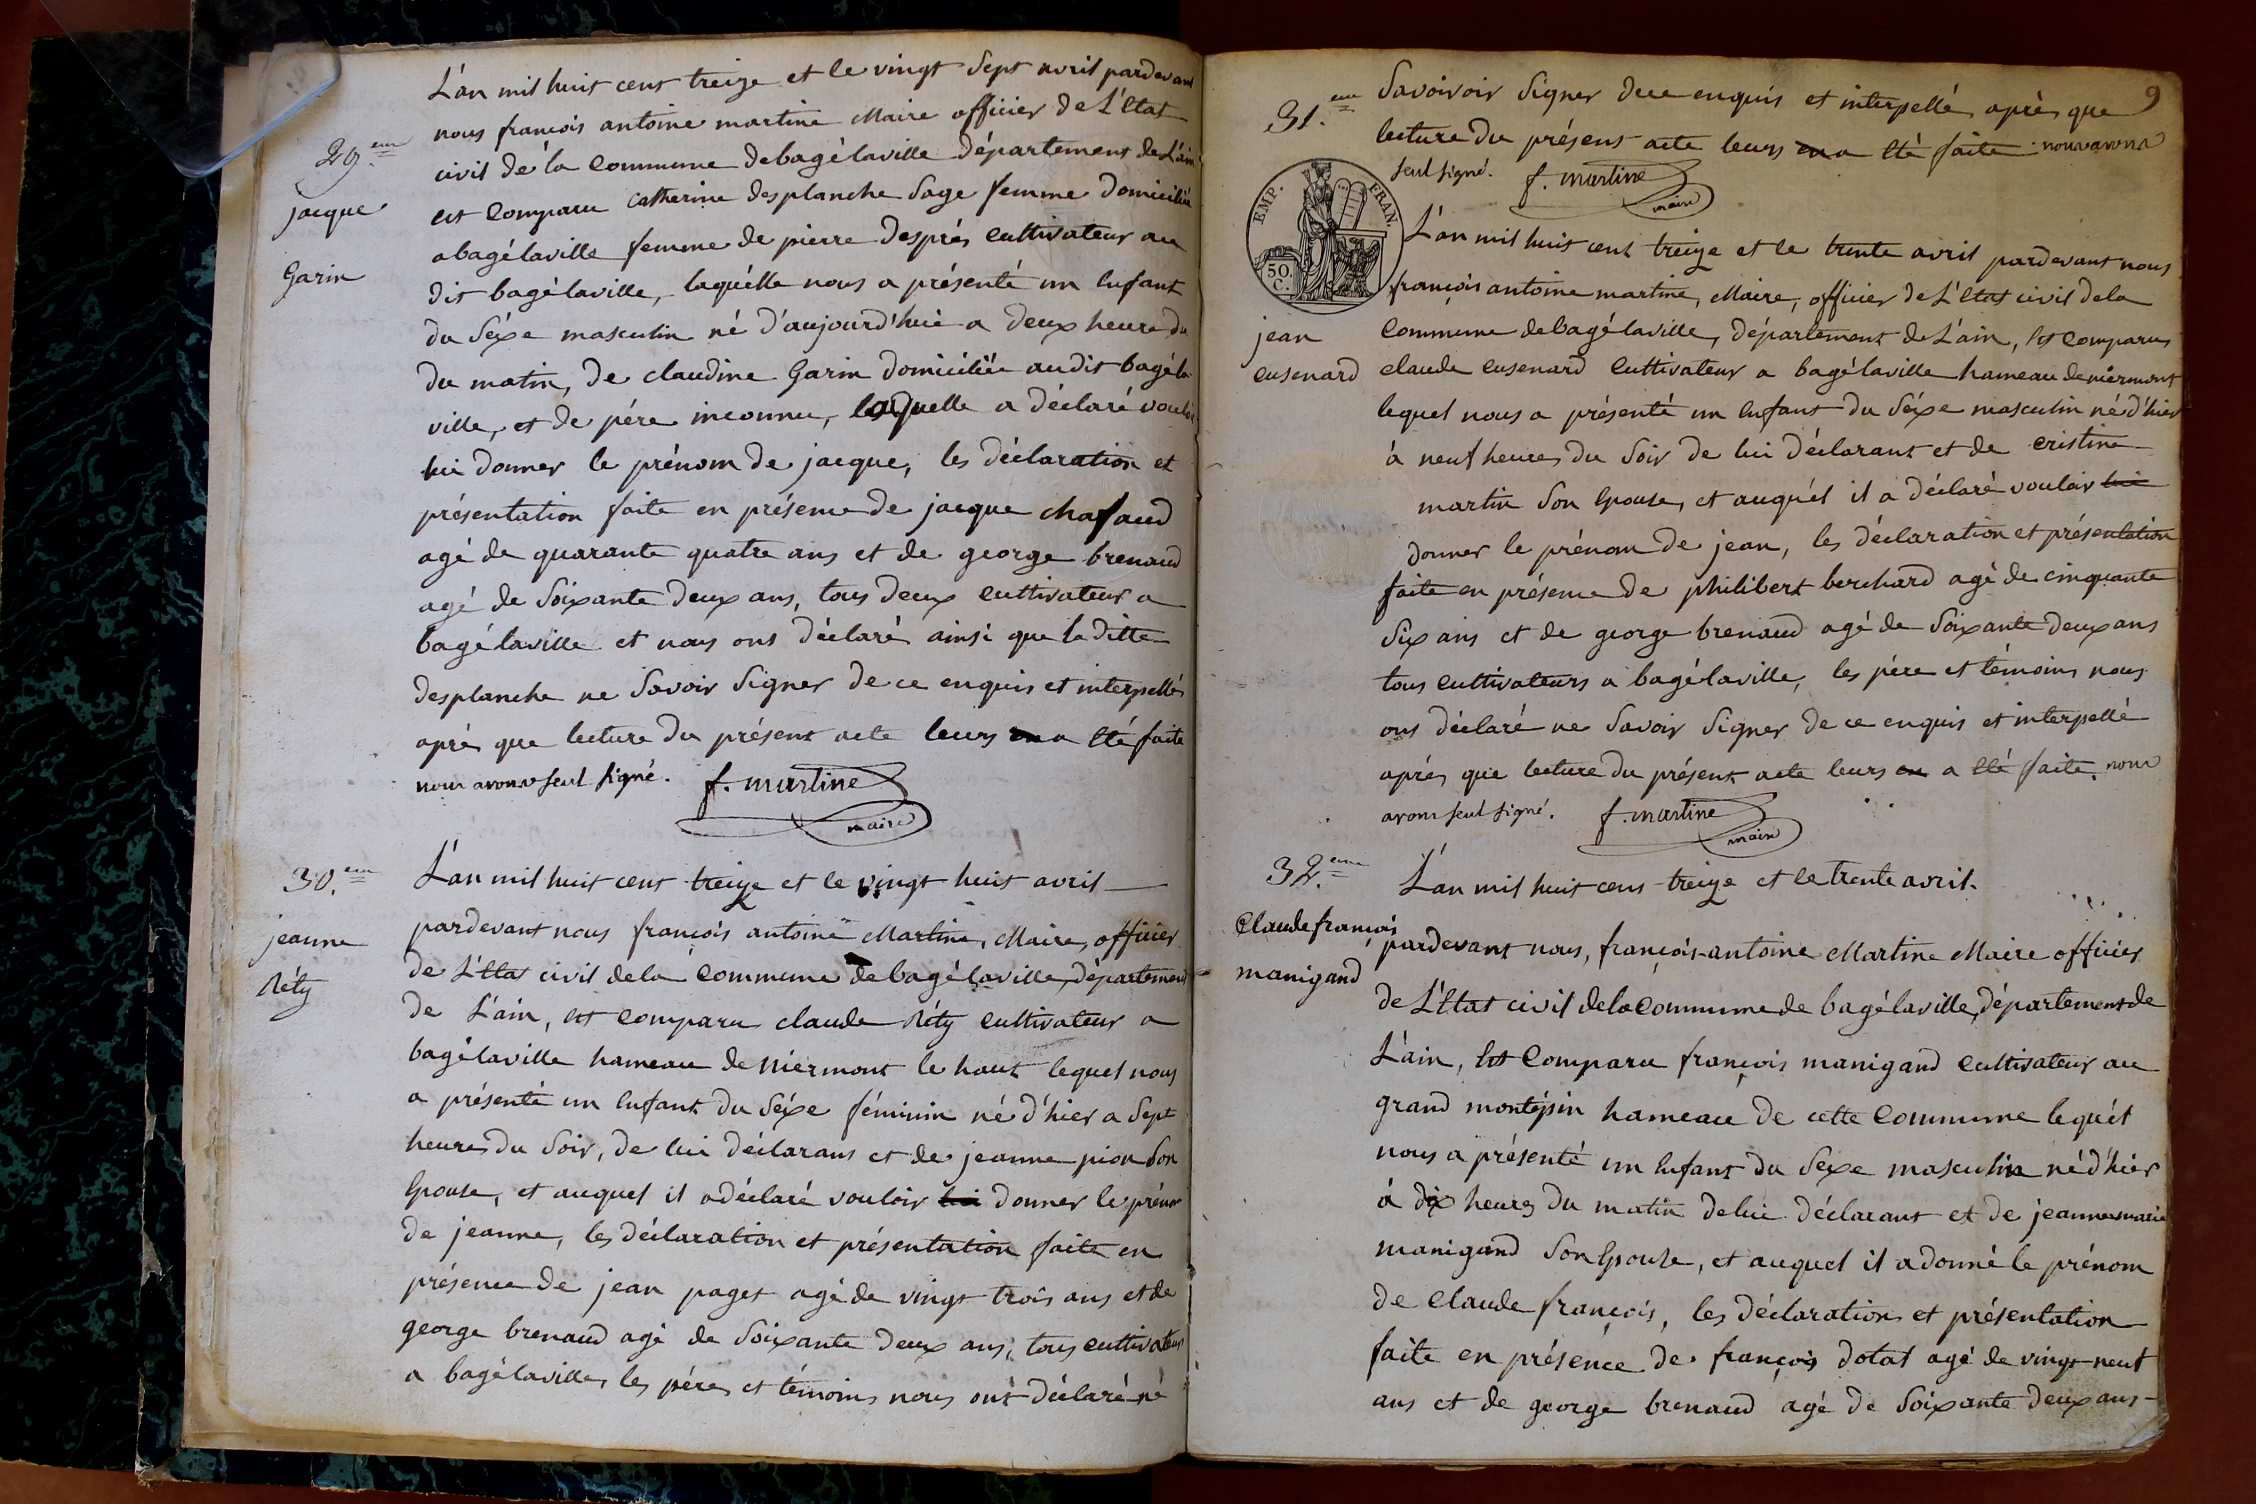 L'an mil huit cent treize et le vingt sept avril pardevant
nous françois antoine martine Maire officier de L'état
29.eme
civil de la Commune de bagélaville département de L'ain
jacque
est Comparu Catherine desplanche Sage femme domiciliée
Garin
a bagélaville femme de pierre després Cultivateur au
dit bagélaville, laquélle nous a présenté un Enfant
du Séxe masculin né d'aujourd'hui a deux heure du
du matin, de claudine Garin domiciliée audit bagéla
ville, et de pére inconnu, laquelle a déclaré vouloir
lui donner le prénom de jacque, les déclaration et
présentation faite en présence de jacque chafaud
agé de quarante quatre ans et de george brenaud
agé de Soixante deux ans, tous deux Cultivateur a
bagélaville et nous ont déclaré ainsi que la ditte
desplanche ne Savoir Signer de ce enquis et interpellés
aprés que lecture du présent acte leurs en a été faite
nous avons seul signé. f. martine
maire
30.eme
L'an mil huit cent treize et le vingt huit avril
jeanne
pardevant nous françois antoine Martine, Maire, officier
Réty
de L'état civil de la Commune de bagélaville, département
de L'ain, est Comparu claude Réty Cultivateur a
bagélaville hameau de Niermont le haut lequel nous
a présenté un Enfant du Séxe féminin né d'hier a Sept
heures du Soir, de lui déclarant et de jeanne pion Son
Epouse, et auquel il a déclaré vouloir lui donner le prénom
de jeanne, les déclaration et présentation faite en
présence de jean paget agé de vingt trois ans et de
george brenaud agé de Soixante deux ans, tous cultivateurs
a bagélaville, les pére et témoins nous ont déclaré né
9
Savoivoir Signer de ce enquis et interpellé aprés que
31.eme
lecture du présent acte leurs en a été faite nous avons
seul signé. f. martine
maire
EMP. FRAN.
50. C.
L'an mil huit cent treize et le trente avril pardevant nous
françois antoine martine, Maire, officier de L'état civil de la
jean
Commune de bagélaville, département de L'ain, est Comparu
cusenard
claude cusenard Cultivateur a bagélaville hameau de niermont
lequel nous a présenté un Enfant du Séxe masculin né d'hier
à neuf heures du Soir de lui déclarant et de cristine
martin Son Epouse, et auquel il a déclaré vouloir lui
donner le prénom de jean, les déclaration et présentation
faite en présence de philibert berchard agé de cinquante
Six ans et de george brenaud agé de Soixante deux ans
tous Cultivateurs a bagélaville, les pére et témoins nous
ont déclaré ne Savoir Signer de ce enquis et interpellé
aprés que lecture du présent acte leurs en a été faite, nous
avons seul signé. f. martine
maire
32.eme
L'an mil huit cent treize et le trente avril.
Claude françois
pardevant nous, françois-antoine Martine Maire officier
manigand
de L'état civil de la Commune de bagélaville, département de
L'ain, Est Comparu françois manigand Cultivateur au
grand montépin hameau de cette Commune lequél
nous a présenté un Enfant du Sexe masculin né d'hier
à dix heures du matin de lui déclarant et de jeanne marie
manigand Son Epouse, et auquel il a donné le prénom
de Claude françois, les déclaration et présentation
faite en présence de françois dotal agé de vingt-neuf
ans et de george brenaud agé de Soixante deux ans